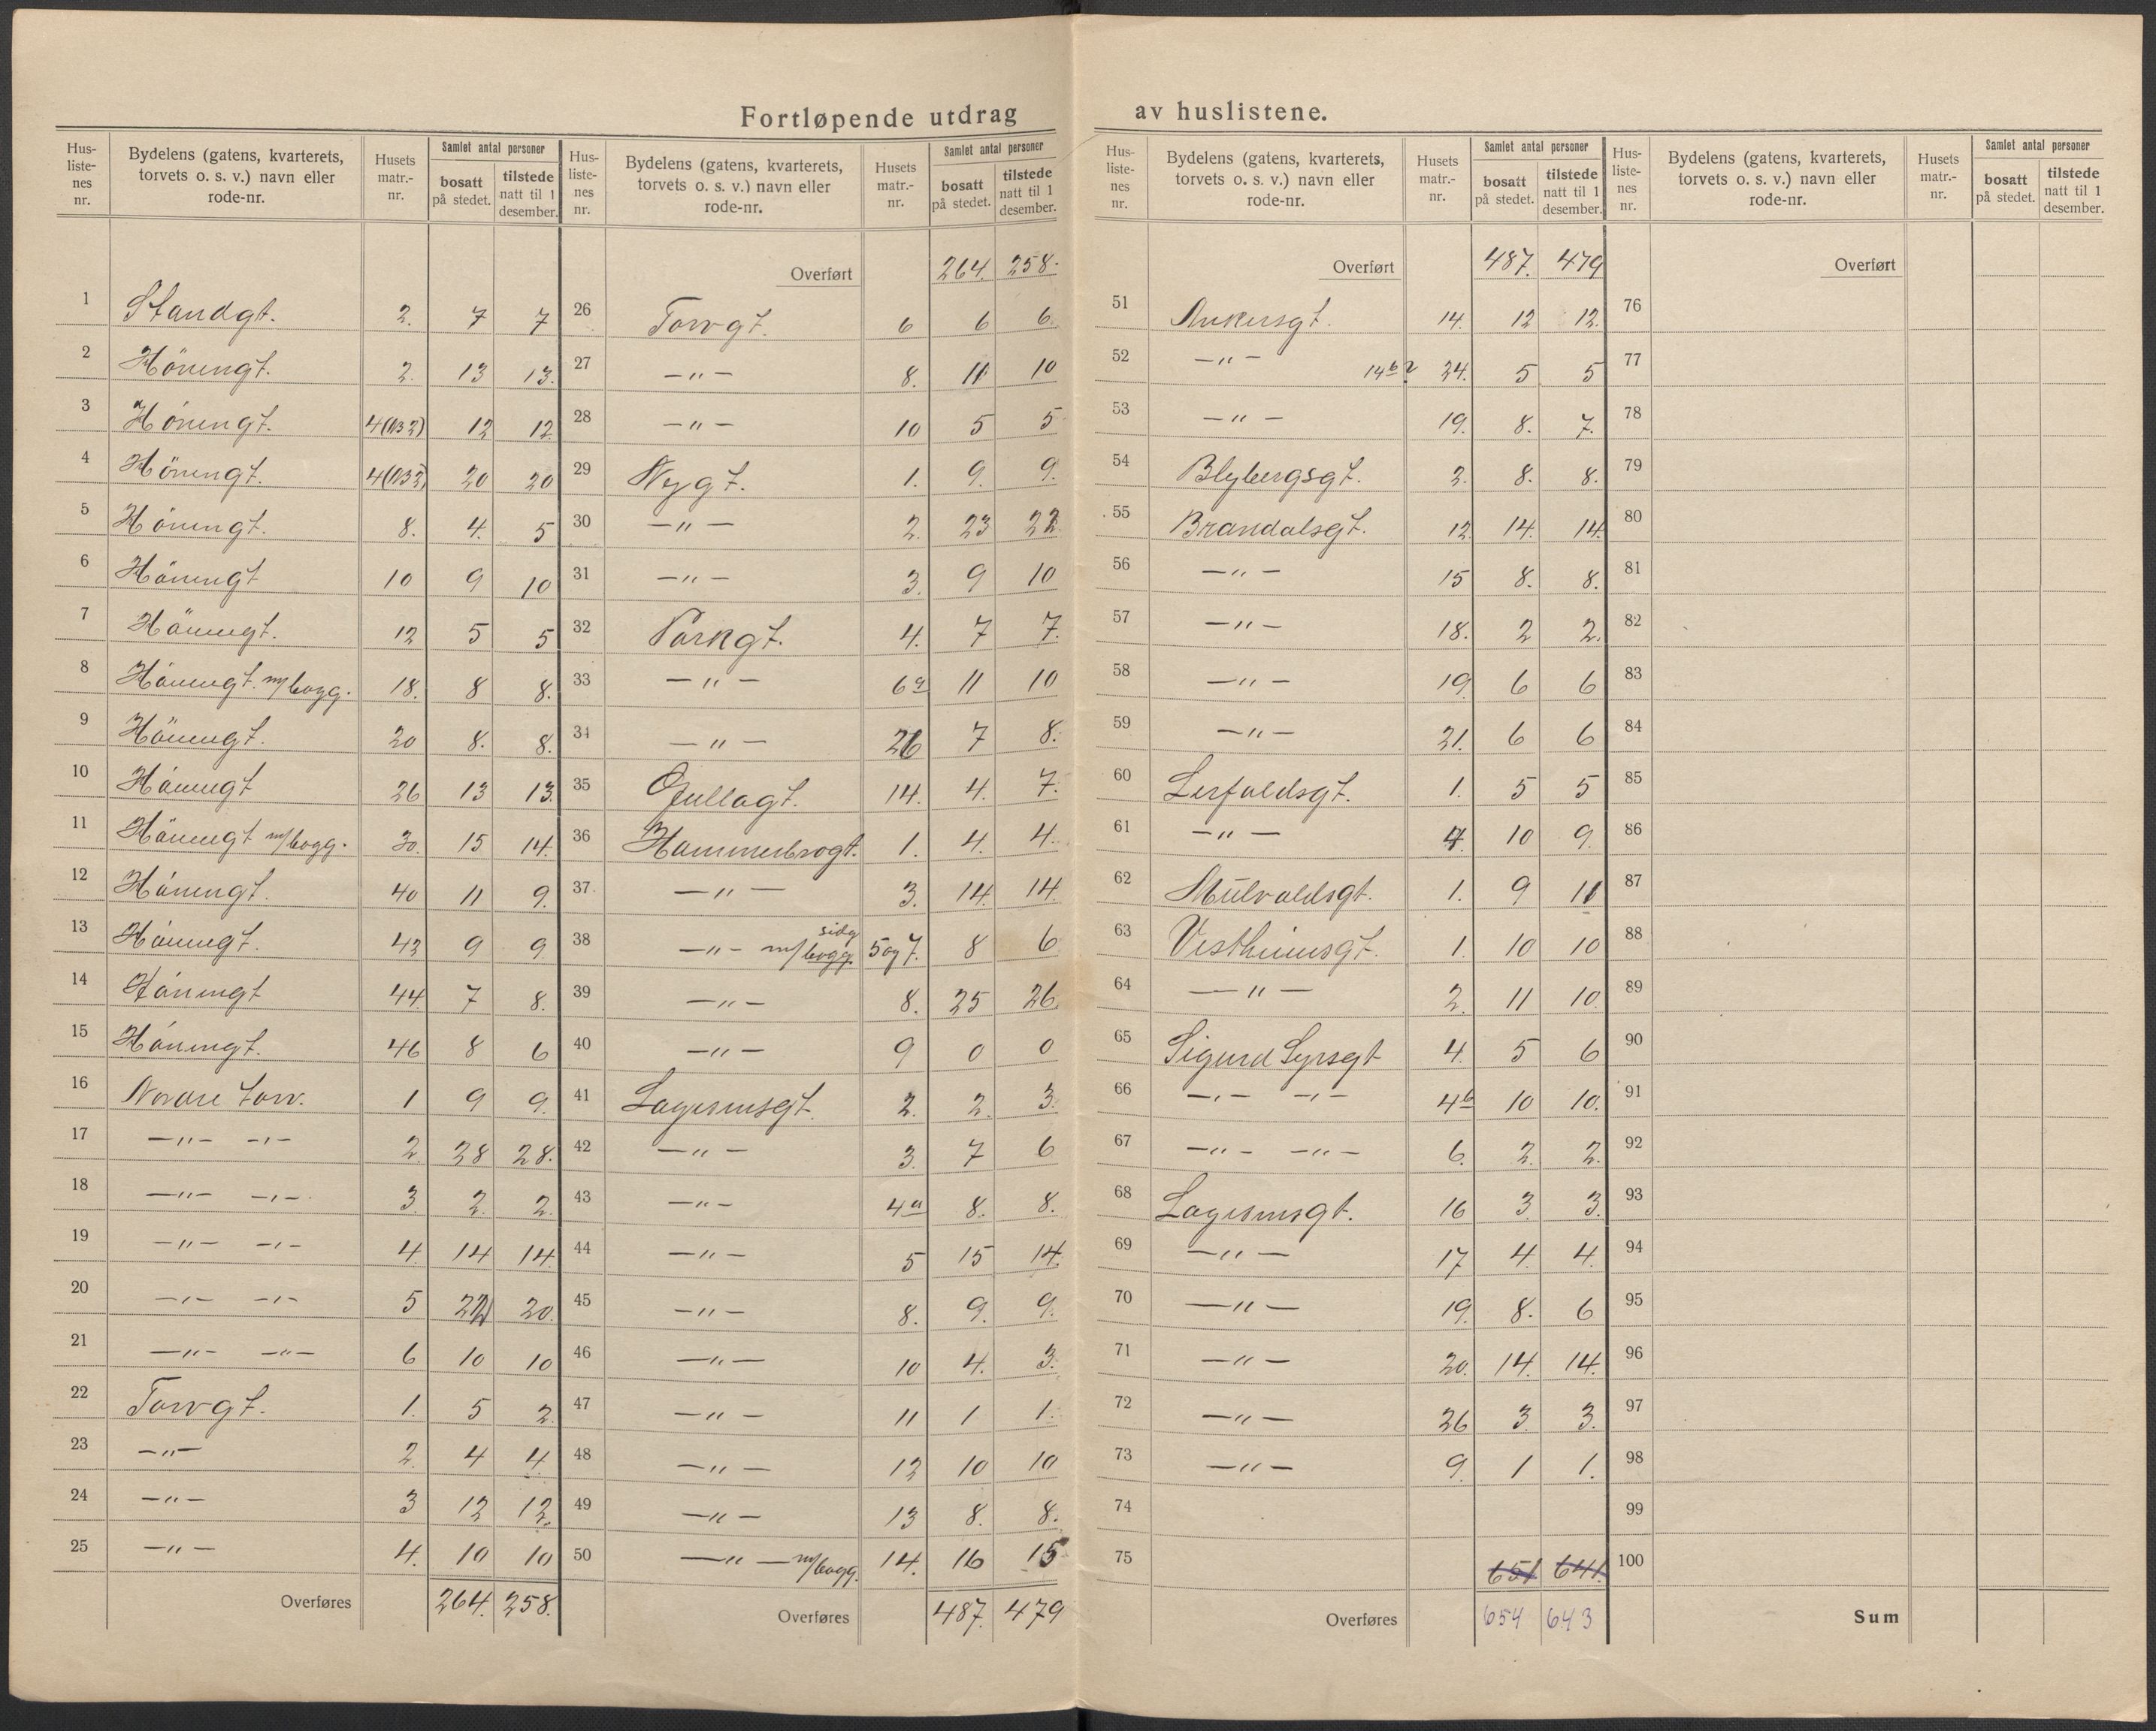 Fortløpende utdrag av huslistene.
Hus-listenes nr. | Bydelens (gatens, kvarterets, torvets o. s. v.) navn eller rode-nr. | Husets matr.-nr. | Samlet antal personer | bosatt på stedet. | tilstede natt til 1 desember.
1 Standgt. 2. 7 7
2 Höuengt. 2. 13 13.
3 Höuengt. 12 12
4 Höuengt. 20 20
5 Höuengt. 8. 4. 5
6 Höuengt 10 9 10
7 Höuengt. 12 5 5
8 Höuengt. m/bogg. 18. 8 8.
9 Höuengt. 20 8. 8.
10 Höuengt 26 13 13.
11 Höuengt m/bogg. 30. 15 14.
12 Höuengt. 40 11 9.
13 Höuengt. 42 9 9
14 Höuengt 44. 7 8.
15 Höuengt. 46 8 6
16 Nordre torv. 1 9 9.
17 —"— —"— 2. 28 28.
18 —"— —"— 3. 2. 2.
19 —"— —"— 4. 14 14.
20 —"— —"— 5 22 20.
21 —"— —"— 6 10 10
22 Torvgt. 1. 5 2.
23 —"— 2. 4 4
24 —"— 3 12 12.
25 —"— 4. 10 10
Overføres 264. 258.
Hus-listenes nr. | Bydelens (gatens, kvarterets, torvets o. s. v.) navn eller rode-nr. | Husets matr.-nr. | Samlet antal personer | bosatt på stedet. | tilstede natt til 1 desember.
Overført 264. 258.
26 Torvgt. 6 6 6.
27 —"— 8. 11 10
28 —"— 10 5 5
29 Nygt. 1. 9. 9.
30 —"— 2. 23 22.
31 —"— 3. 9 10
32 Parkgt. 4. 7 7.
33 —"— 6a 11 10
34 —"— 26 7 8.
35 Gullagt. 14. 4. 7.
36 Hammerbrogt. 1. 4. 4.
37. —"— 3. 14. 14.
38 —"— m/ sidebygg. 5 og 7. 8 6
39 —"— 8. 25 26.
40 —"— 9 0 0
41 Lagesensgt. 2. 2. 3.
42 —"— 3. 7 6
43 —"— 4a 8. 8.
44 —"— 5 15 14.
45 —"— 8. 9. 9.
46 —"— 10 4. 3.
47 —"— 11 1 1.
48 —"— 12 10 10
49 —"— 13 8. 8.
50 —"— m/bogg. 14. 16 15
Overføres 487. 479
Hus-listenes nr. | Bydelens (gatens, kvarterets, torvets o. s. v.) navn eller rode-nr. | Husets matr.-nr. | Samlet antal personer | bosatt på stedet. | tilstede natt til 1 desember.
Overført 487. 479
51 Ankersgt. 14. 12 12.
52 —"— 14b? 24. 5 5
53 —"— 19. 8. 7.
54 Blybergsgt. 2. 8. 8.
55 Brandalsgt. 12 14. 14.
56 —"— 15 8. 8.
57 —"— 18. 2 2.
58 —"— 19. 6 6
59 —"— 21. 6 6
60 Lerfaldsgt. 1. 5 5
61 —"— 4. 10 9.
62 Mülvoldsgt. 1. 9 11
63 Vestheimsgt. 1. 10 10
64 —"— 2. 11 10.
65 Sigurd Syrsgt 4. 5 6
66 —"— —"— 4b 10 10.
67 —"— —"— 6. 2. 2.
68 Lagesensgt. 16 3. 3.
69 —"— 17 4. 4.
70 —"— 19. 8. 6
71 —"— 20. 14. 14.
72 —"— 26 3 3.
73 —"— 9. 1 1.
74
75 651 641.
Overføres 654 643
Hus-listenes nr. | Bydelens (gatens, kvarterets, torvets o. s. v.) navn eller rode-nr. | Husets matr.-nr. | Samlet antal personer | bosatt på stedet. | tilstede natt til 1 desember.
Overført
76
77
78
79
80
81
82
83
84
85
86
87
88
89
90
91
92
93
94
95
96
97
98
99
100
Sum